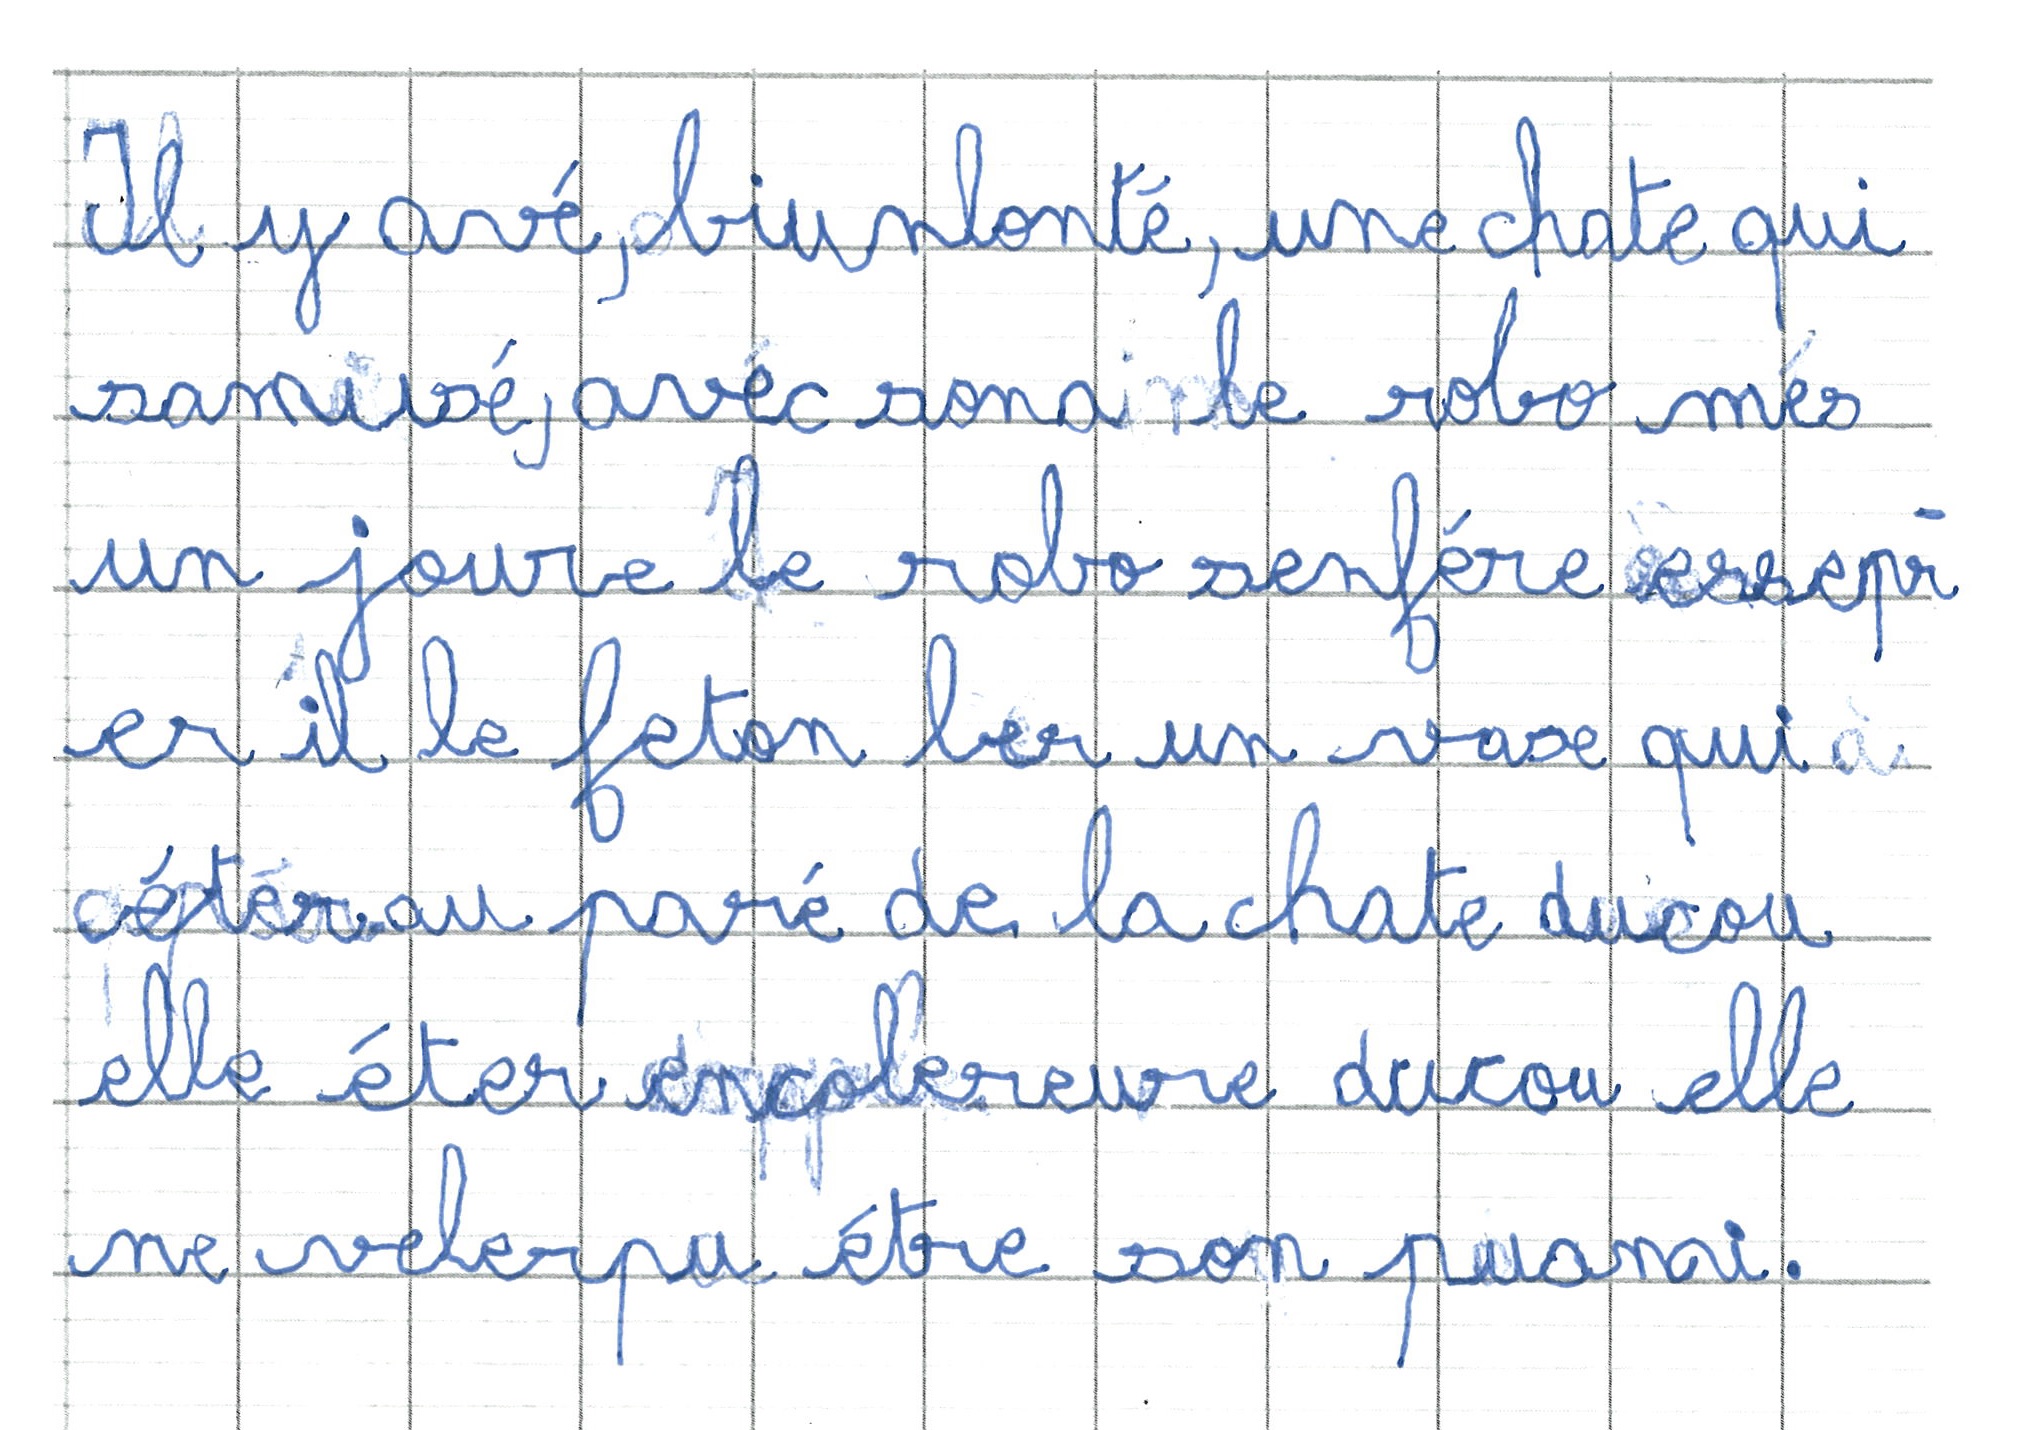 Il y avé, biunlonté, une chate qui
samusé, avéc sona le robo més
un joure le robo senfére essepi
er il le feton ber un vase qui
cétér au paré de la chate ducou
elle éter encolereure ducou elle
ne velerpa étre son puanni.